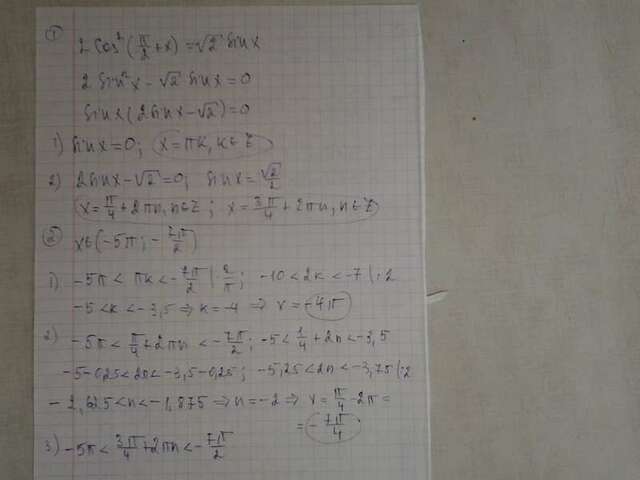 ①
2cos²(π/2 + x) = √2 sin x
2 sin²x - √2 sin x = 0
sin x (2 sin x - √2) = 0
1) sin x = 0; x = πk, k ∈ Z
2) 2 sin x - √2 = 0; sin x = √2/2
x = π/4 + 2πn, n ∈ Z; x = 3π/4 + 2πn, n ∈ Z
② x ∈ (-5π; -7π/2)
1) -5π < πk < -7π/2 |·2/π; -10 < 2k < -7 |:2
-5 < k < -3,5 ⇒ k = -4 ⇒ x = -4π
2) -5π < π/4 + 2πn < -7π/2; -5 < 1/4 + 2n < -3,5
-5-0,25 < 2n < -3,5-0,25; -5,25 < 2n < -3,75 |:2
-2,625 < n < -1,875 ⇒ n = -2 ⇒ x = π/4 - 2π =
= -7π/4
3) -5π < 3π/4 + 2πn < -7π/2